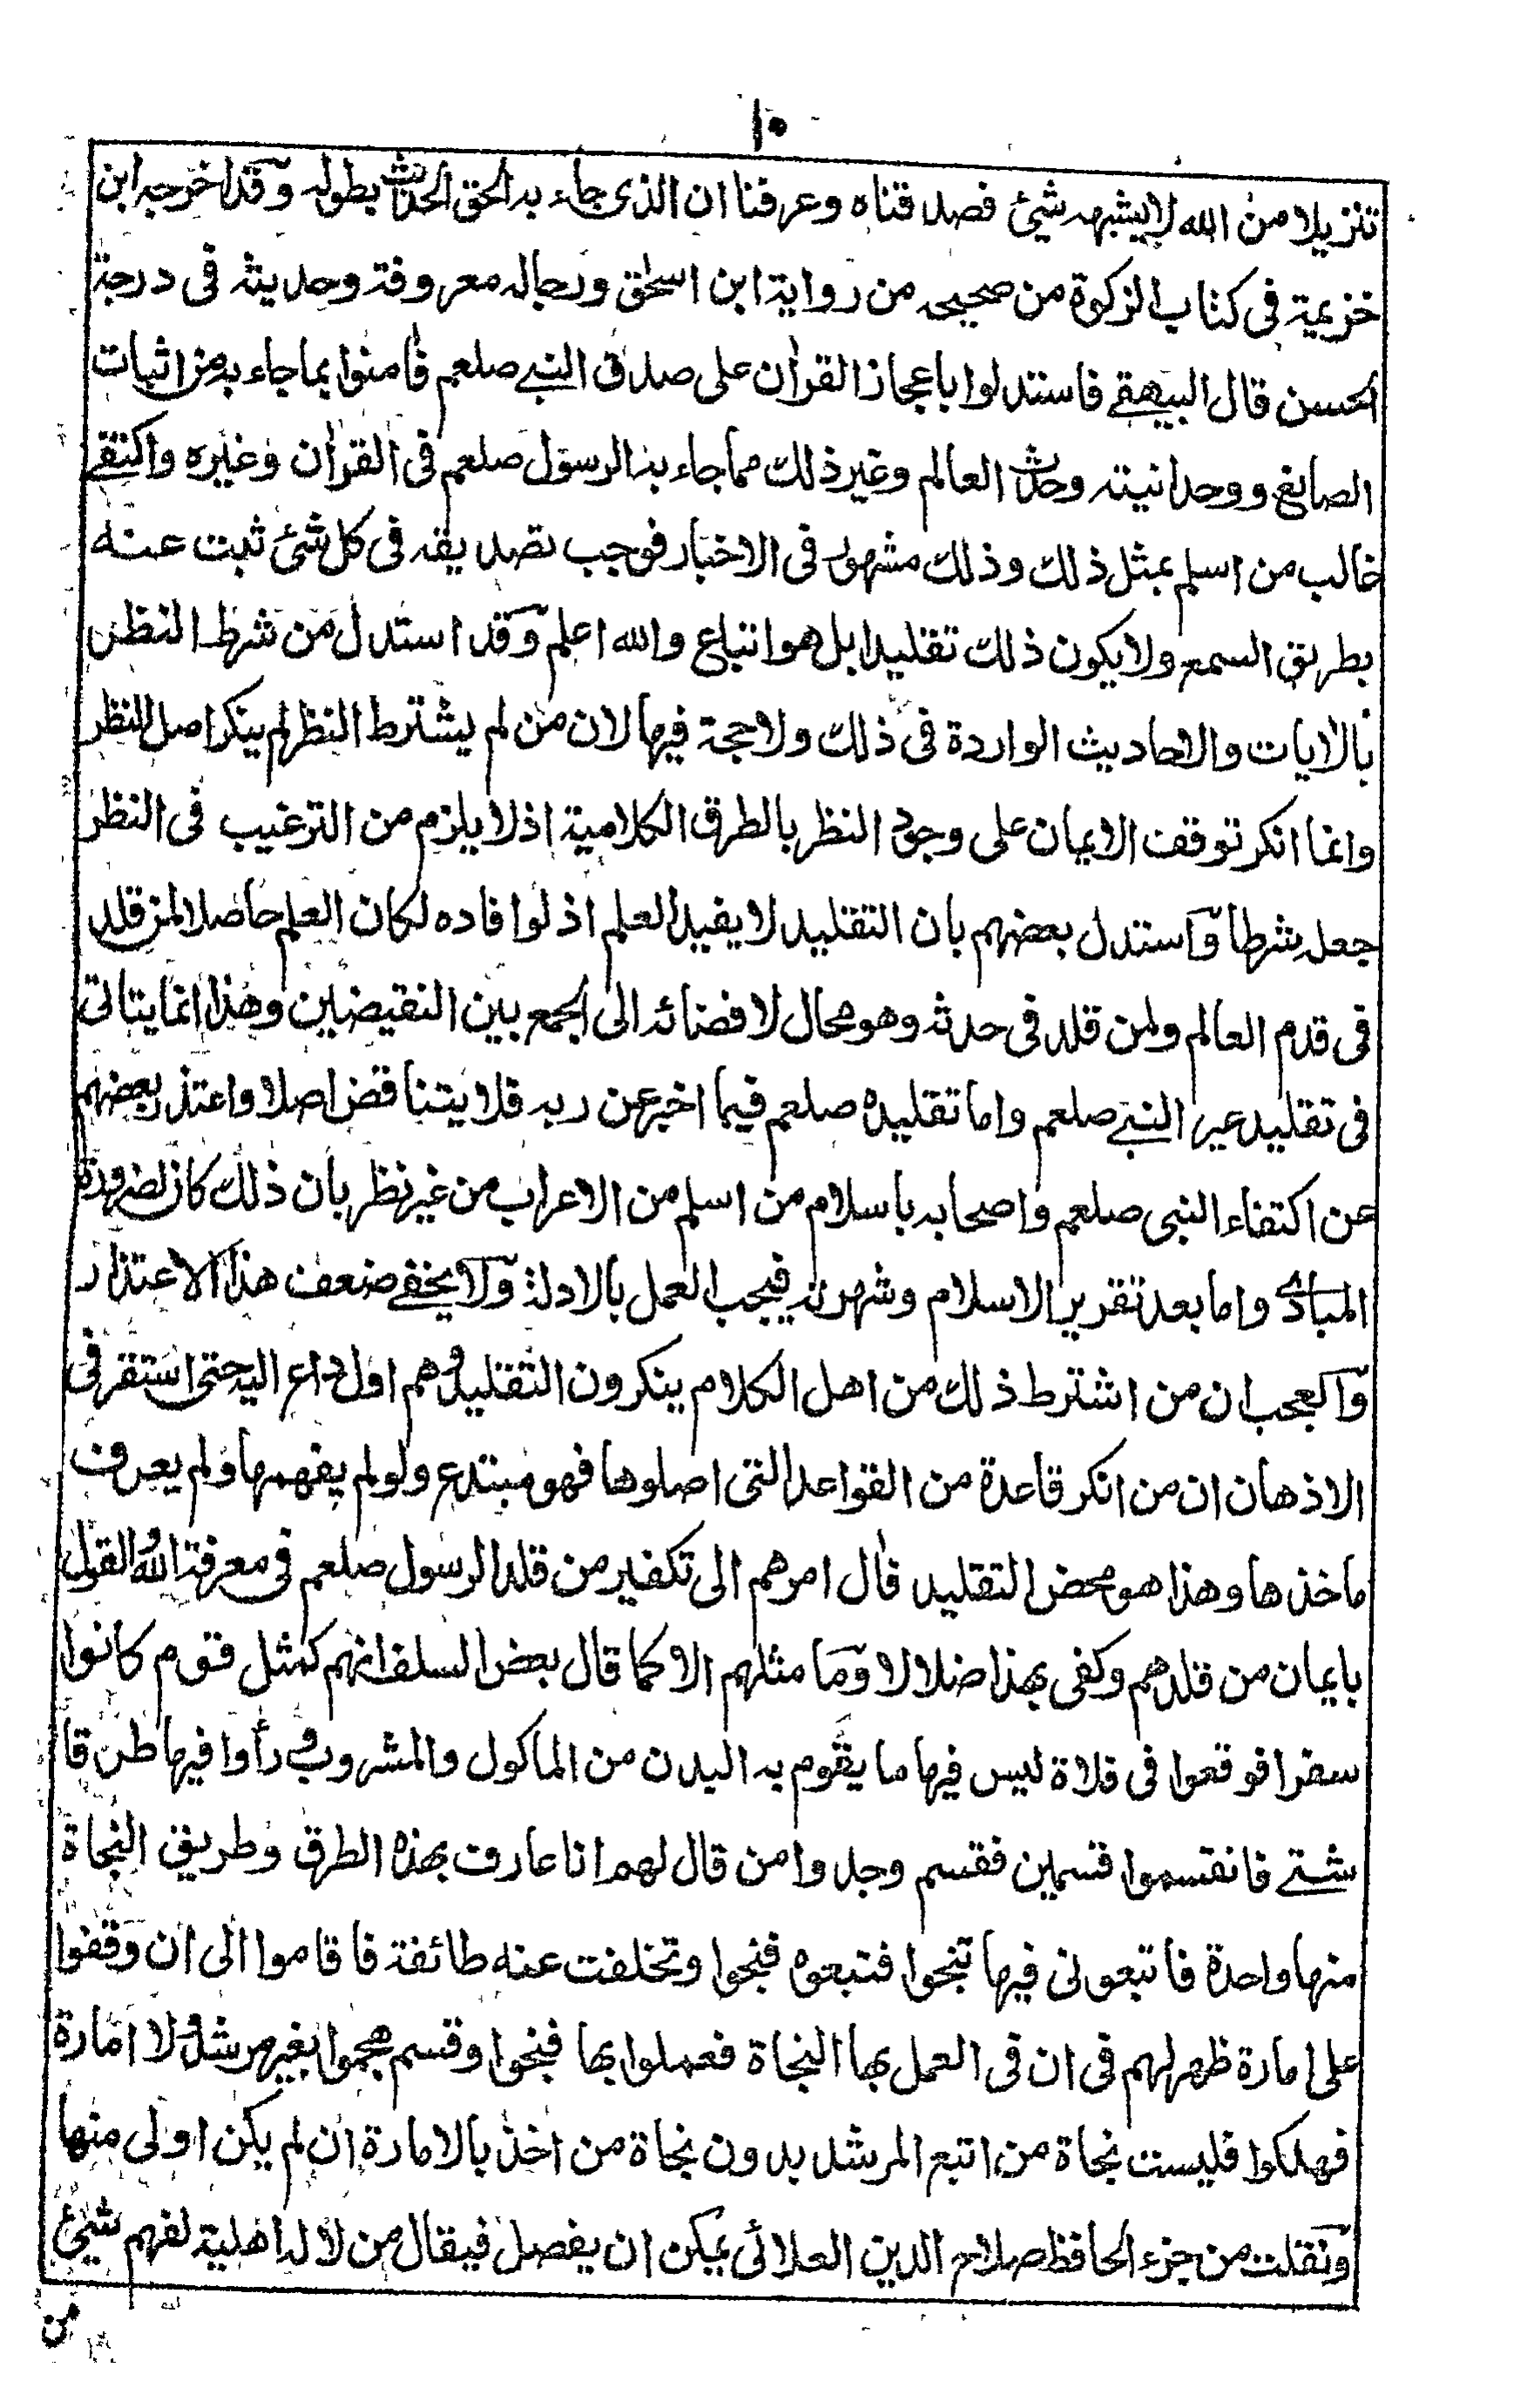 ١٠
تنزيلا من الله لا يشبهه شيئ فصدقناه وعرفنا ان الذى جاء به الحق الحديث بطوله وقد اخرجه ابن
خزيمة فى كتاب الزكوة من صحيحه من رواية ابن اسحٰق ورجاله معروفة وحديثه فى درجة
الحسن قال البيهقے فاستدلوا باعجاز القرآن على صدق النبے صلعم فآمنوا بما جاء به من اثبات
الصانع ووحدانيته وحدث العالم وغير ذلك مما جاء به الرسول صلعم فى القرآن وغيره واكتفے
غالب من اسلم بمثل ذلك وذلك مشهور فى الاخبار فوجب تصديقه فى كل شئ ثبت عنه
بطريق السمع ولا يكون ذلك تقليدا بل هو اتباع والله اعلم وقد استدل من شرط النظر
بالآيات والاحاديث الواردة فى ذلك ولا حجة فيها لان من لم يشترط النظر لم ينكر اصل النظر
وانما انكر توقف الايمان على وجود النظر بالطرق الكلامية اذ لا يلزم من الترغيب فى النظر
جعله شرطا واستدل بعضهم بان التقليد لا يفيد العلم اذ لو افاده لكان العلم حاصلا لمن قلد
فى قدم العالم ولمن قلد فى حدثه وهو محال لافضائه الى الجمع بين النقيضين وهذا انما يتاتى
فى تقليد غير النبے صلعم واما تقليده صلعم فيما اخبر عن ربه فلا يتناقض اصلا واعتذر بعضهم
عن اكتفاء النبى صلعم واصحابه باسلام من اسلم من الاعراب من غير نظر بان ذلك كان لضرورة
المبادى واما بعد تقرير الاسلام وشهرته فيجب العمل بالادلة ولا يخفے ضعف هذا الاعتذار
والعجب ان من اشترط ذلك من اهل الكلام ينكرون التقليد وهم اول داع اليه حتى استقر فى
الاذهان ان من انكر قاعدة من القواعد التى اصلوها فهو مبتدع ولو لم يفهمها ولم يعرف
ماخذها وهذا هو محض التقليد فآل امرهم الى تكفير من قلد الرسول صلعم فى معرفة الله والقول
بايمان من قلدهم وكفى بهذا ضلالا وما مثلهم الا كما قال بعض السلف انهم كمثل قوم كانوا
سفرا فوقعوا فى فلاة ليس فيها ما يقوم به البدن من الماكول والمشروب ورأوا فيها طرقا
شتے فانقسموا قسمين فقسم وجدوا من قال لهم انا عارف بهذه الطرق وطريق النجاة
منها واحدة فاتبعونى فيها تنجوا فتبعوه فنجوا وتخلفت عنه طائفة فاقاموا الى ان وقفوا
على امارة ظهر لهم فى ان فى العمل بها النجاة فعملوا بها فنجوا وقسم هجموا بغير مرشد ولا امارة
فهلكوا فليست نجاة من اتبع المرشد بدون نجاة من اخذ بالامارة ان لم يكن اولى منها
ونقلت من جزء الحافظ صلاح الدين العلائى يمكن ان يفصل فيقال من لا له اهلية لفهم شيئ
من